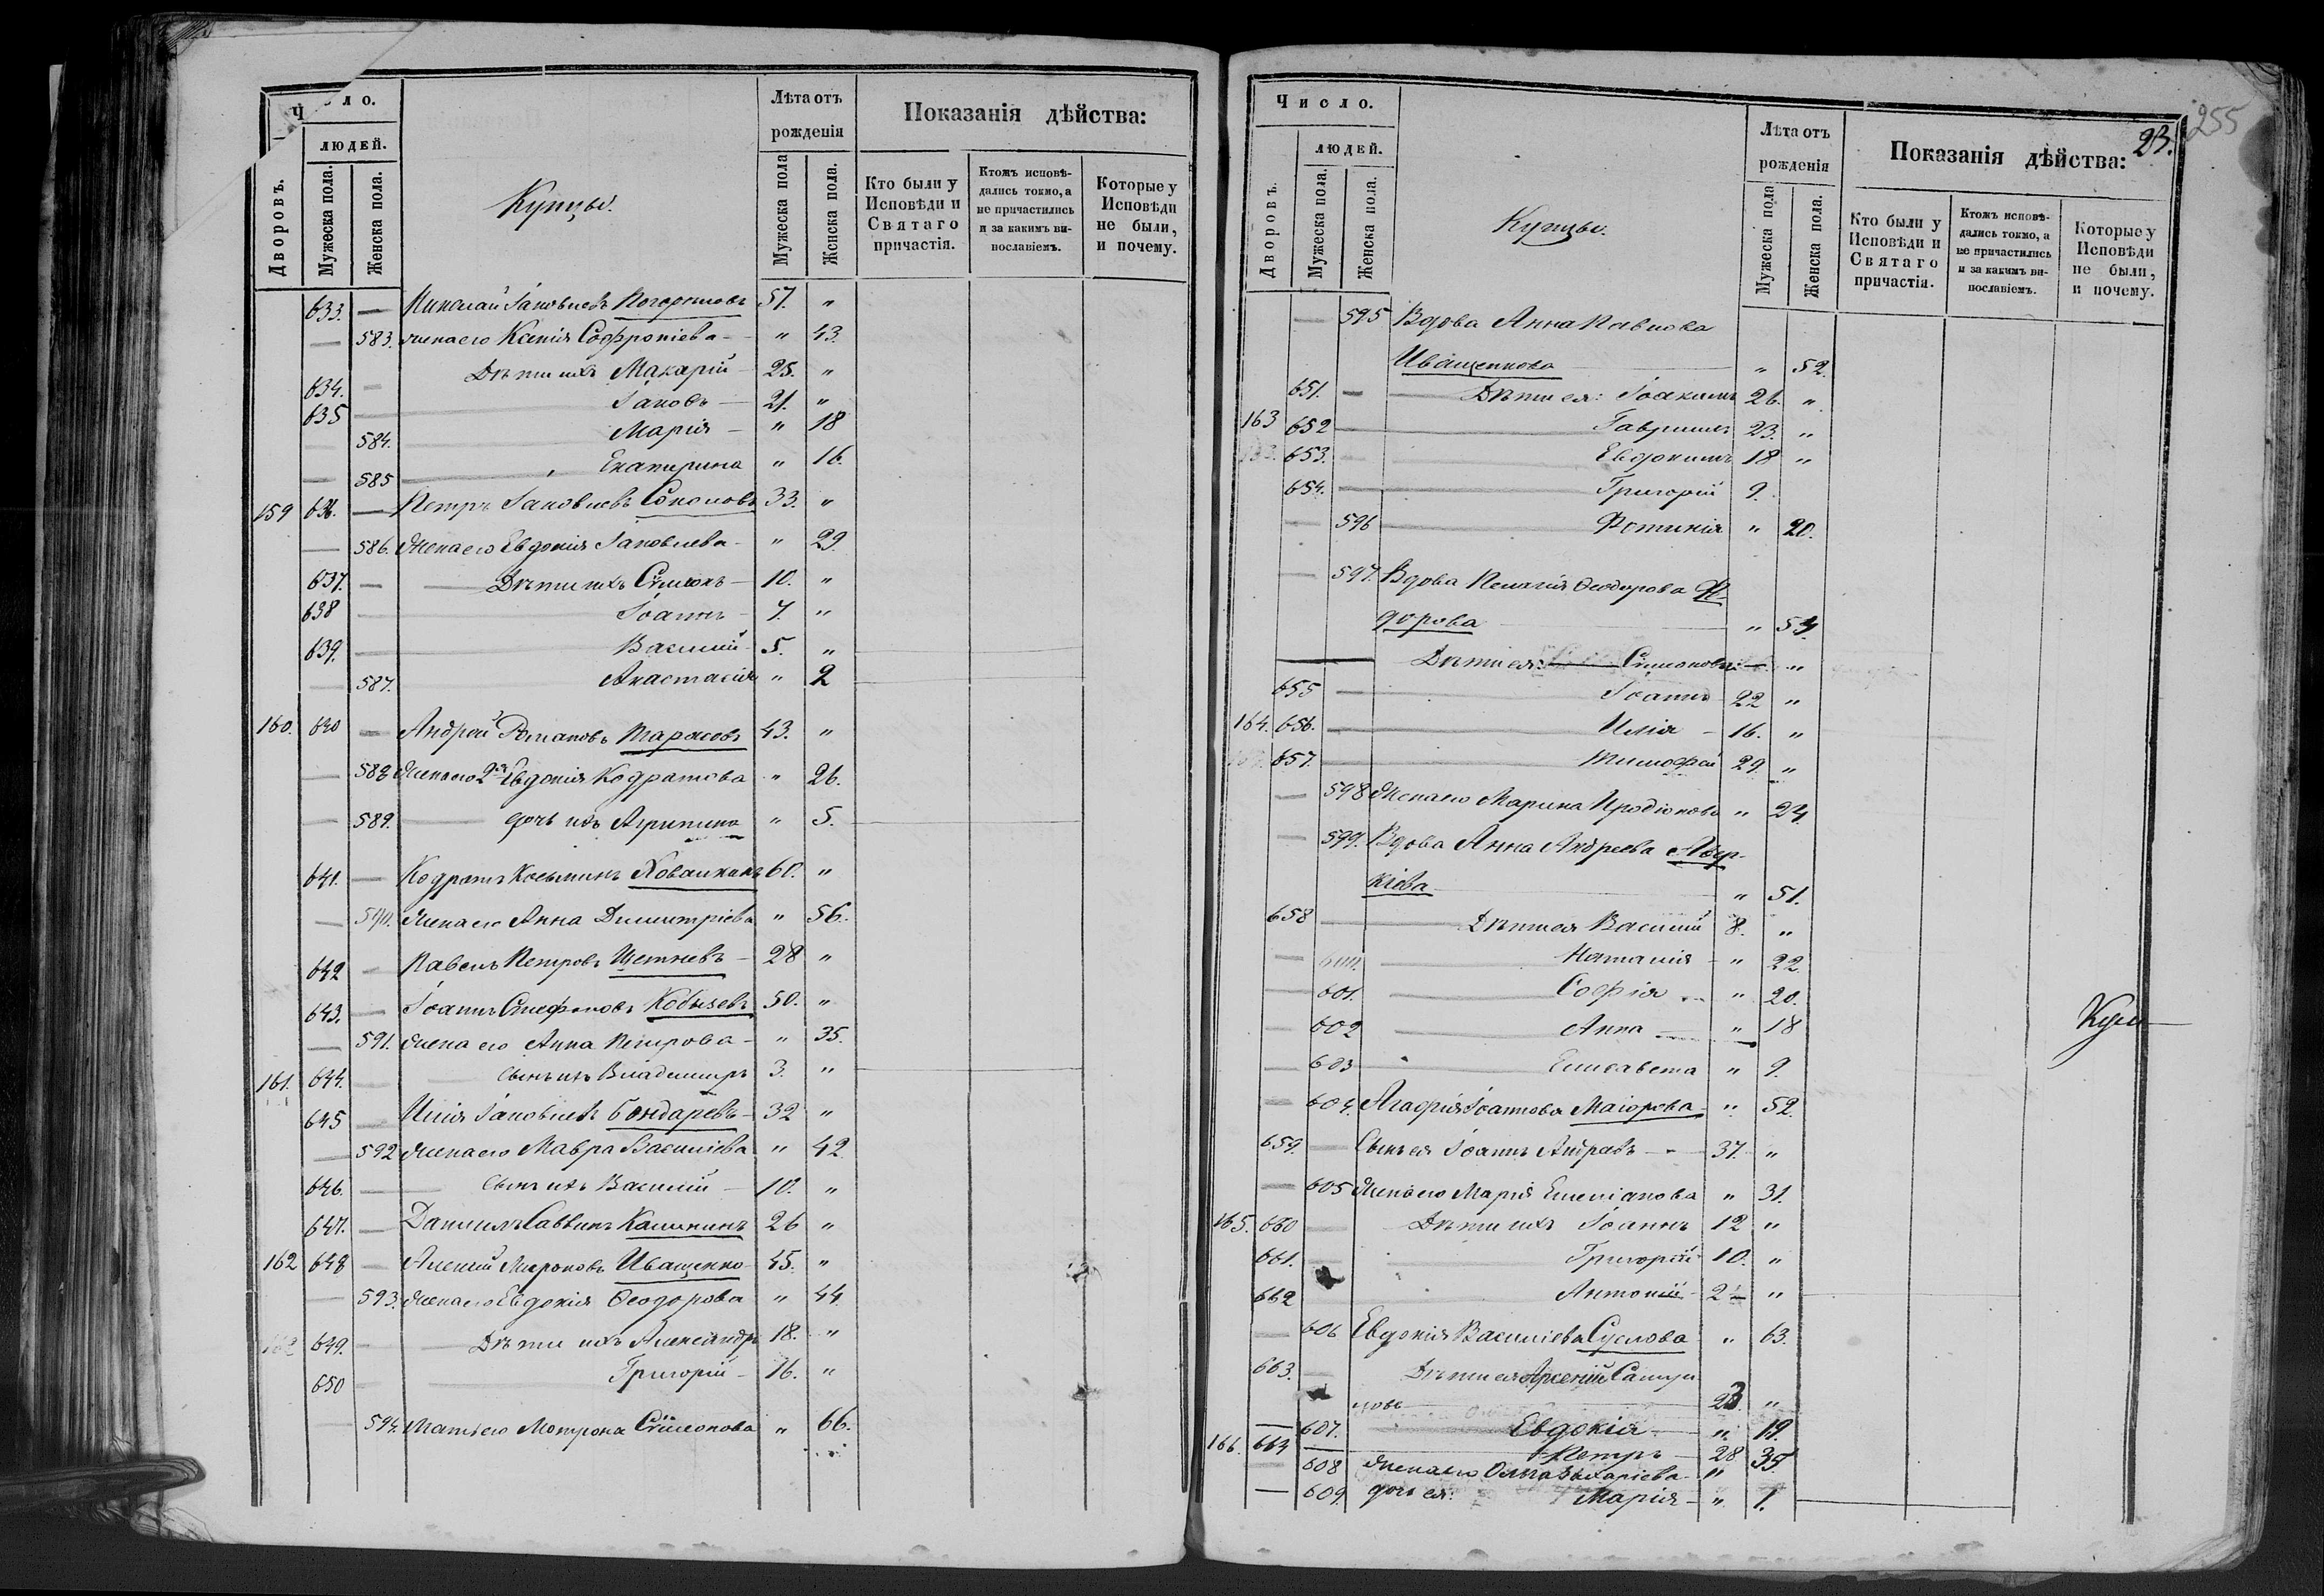 Число.
людей.
Дворовъ.
Мужеска пола.
Женска пола.
Купцы.
Лѣта отъ рожденія
Мужеска пола
Женска пола.
Показанія дѣйства:
Кто были у Исповѣди и Святаго причастія.
Ктожъ исповѣдались токмо, а не причастились и за какимъ винословіемъ.
Которые у Исповѣди не были, и почему.
633. — Николай Іаковлевъ 57. "
— 583. жена его Ксенія Софроніева — " 43.
634. — Дѣти ихъ Макарій 25. "
635 Іаковъ — 21. "
— 584. Марія — " 18
— 585 Екатерина " 16.
159 636. — Петръ Іаковлевъ Соколовъ 33. "
— 586. Жена его Евдокія Іаковлева — " 29.
637. — Дѣти ихъ Симеонъ — 10. "
638 Іоаннъ — 7. "
639. Василій — 5. "
— 587. Анастасія " 2
160. 640 — Андрей Романовъ Тарасовъ 43. "
— 588 Жена его 2я Евдокія Кодратова " 26.
— 589. дочь ихъ Агрипина " 5.
641. — Кодратъ Косьминъ 60. "
— 590. Жена его Анна Димитріева " 56.
642 — Павелъ Петровъ Щетневъ — 28 "
643. — Іоаннъ Стефановъ Кобызевъ 50. "
— 591. Жена его Анна Петрова — " 35.
161. 644. Сынъ ихъ Владимиръ 3. "
645 — Илія Іаковлевъ Бондаревъ — 32 "
— 592 Жена его Мавра Василіева " 42.
646. — Сынъ ихъ Василій — 10. "
647. — Даніилъ Саввинъ Калининъ 26 "
162 648 — Алексій Мироновъ Иващенко — 45. "
— 593. Жена его Евдокія Ѳеодорова " 44.
649. — Дѣти ихъ Александръ 18. "
650 — Григорій — 16. "
— 594. Мать его Мотрона Симеонова " 66.
255
23.
Число.
людей.
Дворовъ.
Мужеска пола.
Женска пола.
Купцы.
Лѣта отъ рожденія
Мужеска пола
Женска пола.
Показанія дѣйства:
Кто были у Исповѣди и Святаго причастія.
Ктожъ исповѣдались токмо, а не причастились и за какимъ винословіемъ.
Которые у Исповѣди не были, и почему.
— 595 Вдова Анна Павлова
Иващенкова " 52.
651. — Дѣти ея: Іоакимъ 26. "
163 652 — Гавріилъ 23. "
653. — Евдокимъ 18 "
654. — Григорій 9.
— 596 Фотинія " 20.
— 597. Вдова Пелагія Ѳеодорова Ѳе-
дорова " 54.
Дѣти ея: Симеоновы: — "
655 — Іоаннъ 22 "
164. 656. — Илія — 16. "
657. Тимофей 29. "
— 598 Жена его Марина Иродіонова " 24.
— 599. Вдова Анна Андреева Авер-
кіева " 51.
658 — Дѣти ея Василій 8. "
— 600. Наталія — " 22.
— 601. Софія — " 20.
— 602 Анна — " 18
— 603 Елисавета " 9.
— 604. Агафія Іоаннова Маіорова " 52.
659. — Сынъ ея Іоаннъ 37. "
— 605 Жена его Марія Емеліанова " 31.
165. 660 — Дѣти ихъ Іоаннъ 12 "
661. — Григорій 10. "
662 Антоній 2 "
— 606 Евдокія Василіева Суслова " 63.
663. — Дѣти ея Арсеній
23 "
— 607. Евдокія — " 19.
166. 664 — Петръ — 28
608 Жена его " 35.
— 609. дочь ея: Марія — " 1.